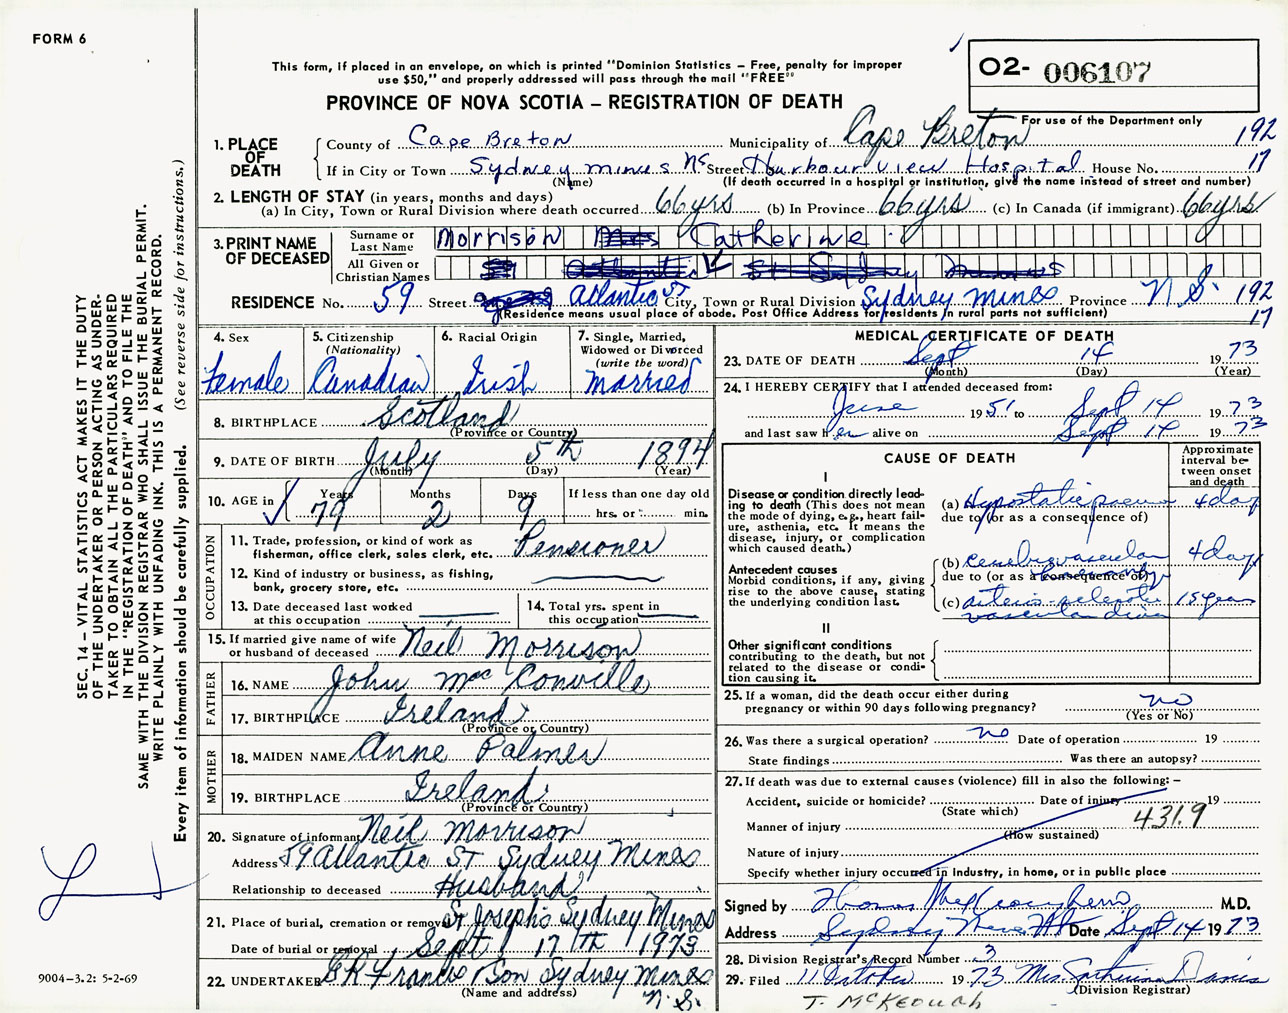 FORM 6
This form, if placed in an envelope, on which is printed "Dominion Statistics – Free, penalty for improper
use $50," and properly addressed will pass through the mail "FREE"
PROVINCE OF NOVA SCOTIA – REGISTRATION OF DEATH
O2- 006107
For use of the Department only
1. PLACE OF DEATH
County of Cape Breton Municipality of Cape Breton 192
If in City or Town Sydney mines NS Street Harbour view Hospital House No. 17
(Name) (If death occurred in a hospital or institution, give the name instead of street and number)
2. LENGTH OF STAY (in years, months and days)
(a) In City, Town or Rural Division where death occurred 66yrs (b) In Province 66yrs (c) In Canada (if immigrant) 66yrs
3. PRINT NAME OF DECEASED
Surname or Last Name Morrison Mrs Catherine
All Given or Christian Names 59 Atlantic St Sydney Mines
RESIDENCE No. 59 Street Atlantic ST City, Town or Rural Division Sydney Mines Province N.S. 192
(Residence means usual place of abode. Post Office Address for residents in rural parts not sufficient) 17
4. Sex
Female
5. Citizenship
(Nationality)
Canadian
6. Racial Origin
Irish
7. Single, Married,
Widowed or Divorced
(write the word)
Married
8. BIRTHPLACE Scotland
(Province or Country)
9. DATE OF BIRTH July 5th 1894
(Month) (Day) (Year)
10. AGE in Years Months Days If less than one day old
79 2 9 hrs. or min.
OCCUPATION
11. Trade, profession, or kind of work as
fisherman, office clerk, sales clerk, etc. Pensioner
12. Kind of industry or business, as fishing,
bank, grocery store, etc.
13. Date deceased last worked
at this occupation
14. Total yrs. spent in
this occupation
15. If married give name of wife
or husband of deceased Neil Morrison
FATHER
16. NAME John MacConville
17. BIRTHPLACE Ireland
(Province or Country)
MOTHER
18. MAIDEN NAME Anne Palmer
19. BIRTHPLACE Ireland
(Province or Country)
20. Signature of informant Neil Morrison
Address 59 Atlantic ST Sydney Mines
Relationship to deceased Husband
21. Place of burial, cremation or removal St Joseph's Sydney Mines
Date of burial or removal Sept 17TH 1973
22. UNDERTAKER Francis & Son Sydney Mines
(Name and address) N.S.
MEDICAL CERTIFICATE OF DEATH
23. DATE OF DEATH Sept 14 1973
(Month) (Day) (Year)
24. I HEREBY CERTIFY that I attended deceased from:
June 1951 to Sept 14 1973
and last saw her alive on Sept 14 1973
CAUSE OF DEATH
Approximate
interval be-
tween onset
and death
I
Disease or condition directly lead-
ing to death (This does not mean
the mode of dying, e.g., heart fail-
ure, asthenia, etc. It means the
disease, injury, or complication
which caused death.)
(a) Hypostatic pneumo 4 day
due to (or as a consequence of)
Antecedent causes
Morbid conditions, if any, giving
rise to the above cause, stating
the underlying condition last.
(b) cerebrovascular 4 day
due to (or as a consequence of)
(c) arterio-sclerotic 15 years
vascular
II
Other significant conditions
contributing to the death, but not
related to the disease or condi-
tion causing it.
25. If a woman, did the death occur either during
pregnancy or within 90 days following pregnancy? no
(Yes or No)
26. Was there a surgical operation? no Date of operation 19
State findings Was there an autopsy?
27. If death was due to external causes (violence) fill in also the following: –
Accident, suicide or homicide? Date of injury 19
(State which)
Manner of injury 431.9
(How sustained)
Nature of injury
Specify whether injury occurred in Industry, in home, or in public place
Signed by M.D.
Address Date Sept 14 1973
28. Division Registrar's Record Number 3
29. Filed 11 October 1973 Mrs. Davis
(Division Registrar)
T. McKeough
SEC. 14 – VITAL STATISTICS ACT MAKES IT THE DUTY
OF THE UNDERTAKER OR PERSON ACTING AS UNDER-
TAKER TO OBTAIN ALL THE PARTICULARS REQUIRED
IN THE "REGISTRATION OF DEATH" AND TO FILE THE
SAME WITH THE DIVISION REGISTRAR WHO SHALL ISSUE THE BURIAL PERMIT.
WRITE PLAINLY WITH UNFADING INK. THIS IS A PERMANENT RECORD.
Every item of information should be carefully supplied. (See reverse side for instructions.)
9004–3.2: 5-2-69